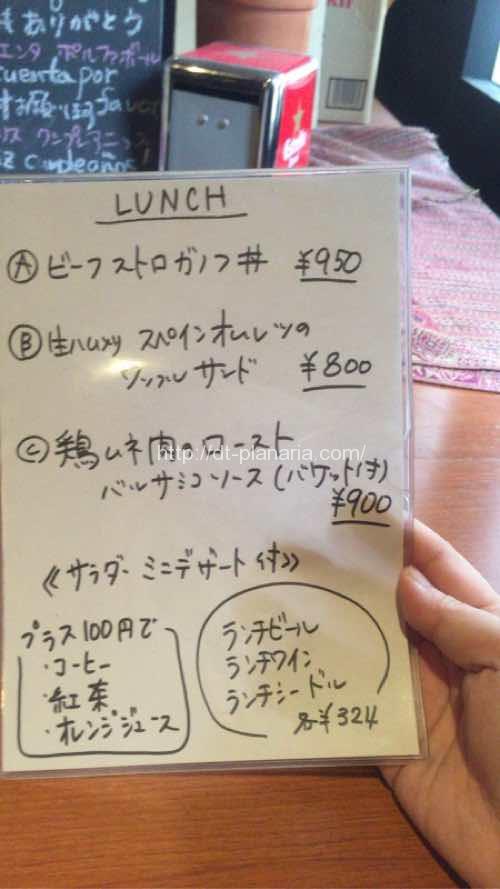 もありがとう
エンタ ポルファボール
cuenta por
お願い
LUNCH
Ⓐ ビーフストロガノフ丼 ¥950
Ⓑ 生ハムメリ スペインオムレツの
サンド ¥800
Ⓒ 鶏ムネ肉のロースト
http://dt-planaria.com/
バルサミコソース(バケット付)
¥900
《サラダー ミニデザート付》
プラス100円で
・コーヒー
・紅茶
・オレンジジュース
ランチビール
ランチワイン
ランチシードル
各¥324